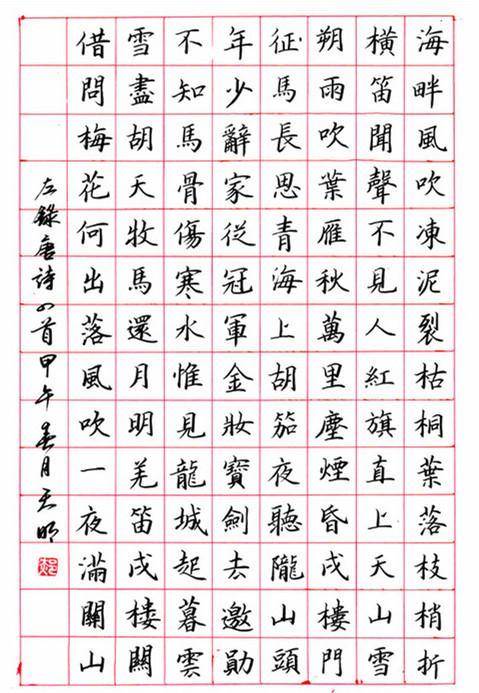 海畔風吹凍泥裂枯桐葉落枝梢折
橫笛聞聲不見人紅旗直上天山雪
朔雨吹葉雁秋萬里塵煙昏戍樓門
征馬長思青海上胡笳夜聽隴山頭
年少辭家從冠軍金妝寶劍去邀勛
不知馬骨傷寒水惟見龍城起暮雲
雪盡胡天牧馬還月明羌笛戍樓關
借問梅花何出落風吹一夜滿關山
左錄唐詩四首甲午春月天明